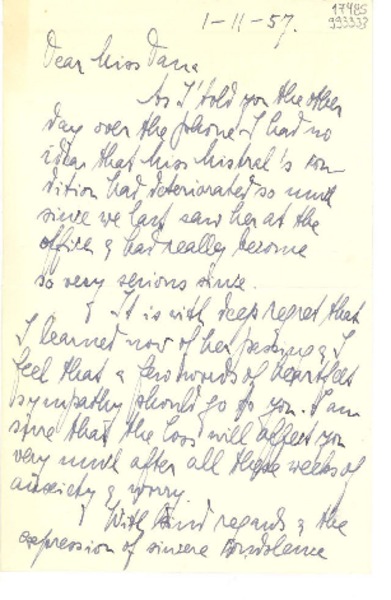 17485
993333
1-11-57.
Dear Miss Dana
As I told you the other
day over the phone I had no
idea that Miss Mistral's con-
dition had deteriorated so much
since we last saw her at the
office & had really become
so very serious since.
It is with deep regret that
I learned now of her passing & I
feel that a few words of heartfelt
sympathy should go to you. I am
sure that the loss will affect you
very much after all these weeks of
anxiety & worry.
With kind regards & the
expression of sincere condolence